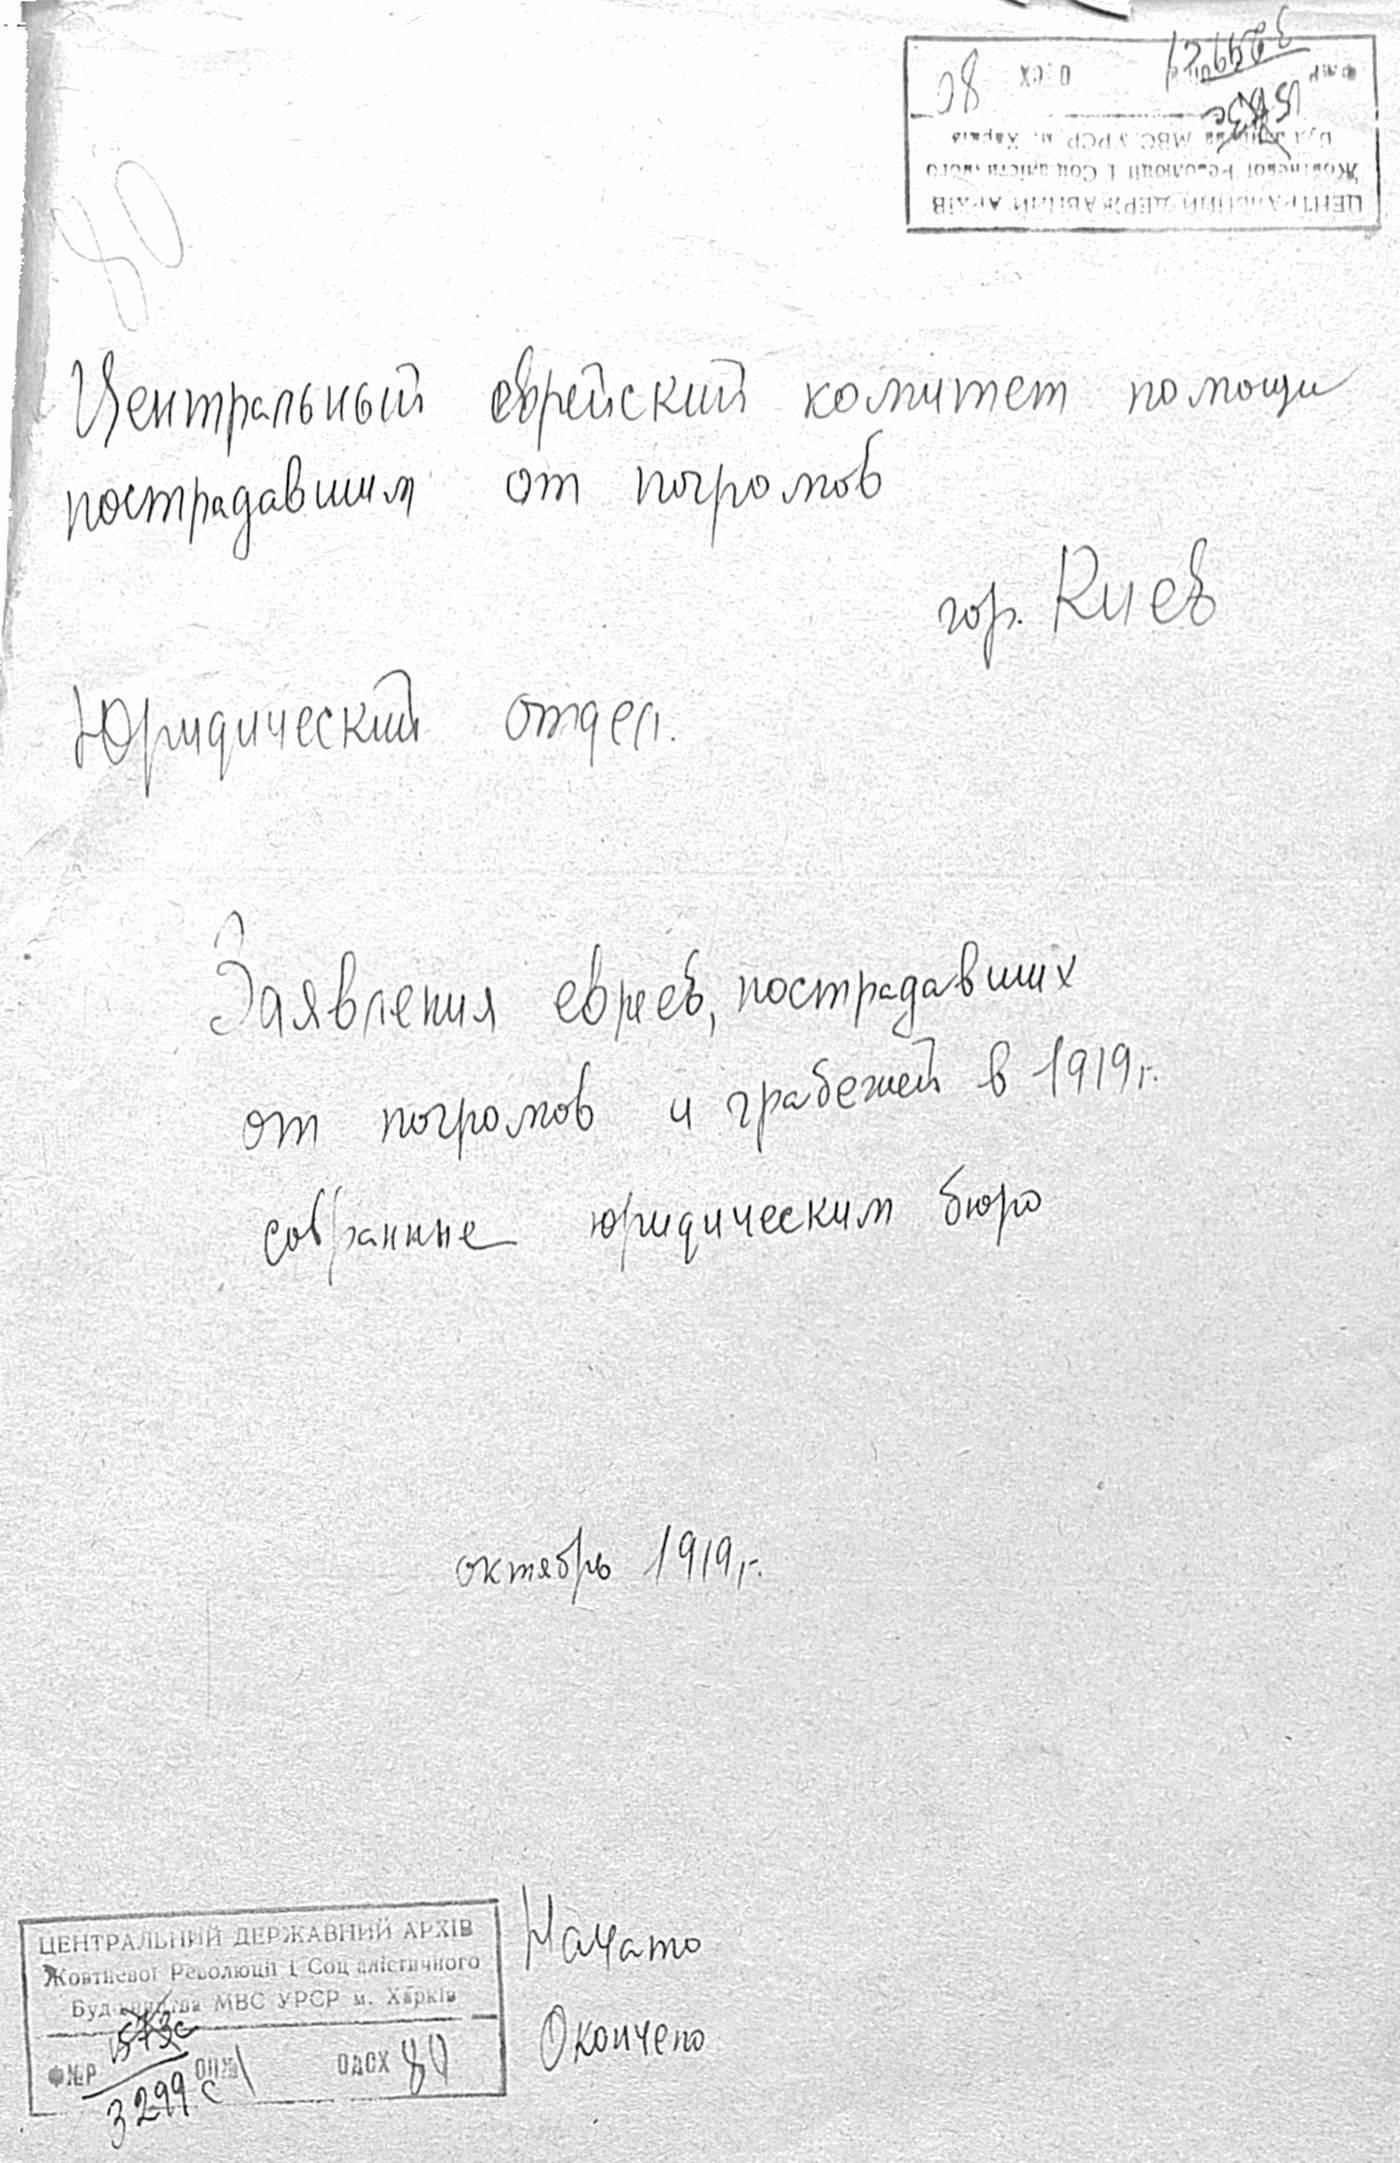 80
Центральный еврейский комитет помощи
пострадавшим от погромов
гор. Киев
Юридический отдел.
Заявления евреев, пострадавших
от погромов и грабежей в 1919 г.
собранные юридическим бюро
октябрь 1919 г.
Начато
Окончено
ЦЕНТРАЛЬНИЙ ДЕРЖАВНИЙ АРХІВ
Жовтневої Революції і Соціалістичного
Будівництва МВС УРСР м. Харків
Ф№Р 1573с ОП№ 1 ОДСХ 80
3299 с
ЦЕНТРАЛЬНИЙ ДЕРЖАВНИЙ АРХІВ
Жовтневої Революції і Соціалістичного
Будівництва МВС УРСР м. Харків